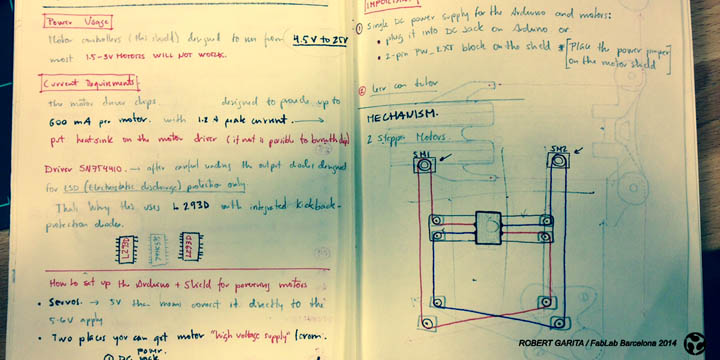 Power Usage
Motor controllers (this shield) designed to run from 4.5V to 25V
most 1.5-3V MOTORS WILL NOT WORK.
Current Requirements:
the motor driver chips designed to provide up to
600 mA per motor. with 1.2 A peak current.
put heatsink on the motor driver (if not is possible to burn the chip)
Driver SN754410. → after careful reading the output diodes designed
for ESD (Electrostatic discharge) protection only.
That's why this uses L293D with integrated kickback-
protection diodes.
L293D
L293D
How to set up the Arduino + Shield for powering motors
• Servos. → 5V the means connect it directly to the
5-6V apply
• Two places you can get motor "high voltage supply" from.
① DC Jack
IMPORTANT
① Single DC power supply for the Arduino and motors:
• plug it into DC Jack on Arduino or
• 2-pin PW_EXT block on the shield * [Place the power jumper
on the motor shield]
②
MECHANISM.
2 Stepper Motors.
SM1
SM2
ROBERT GARITA / FabLab Barcelona 2014